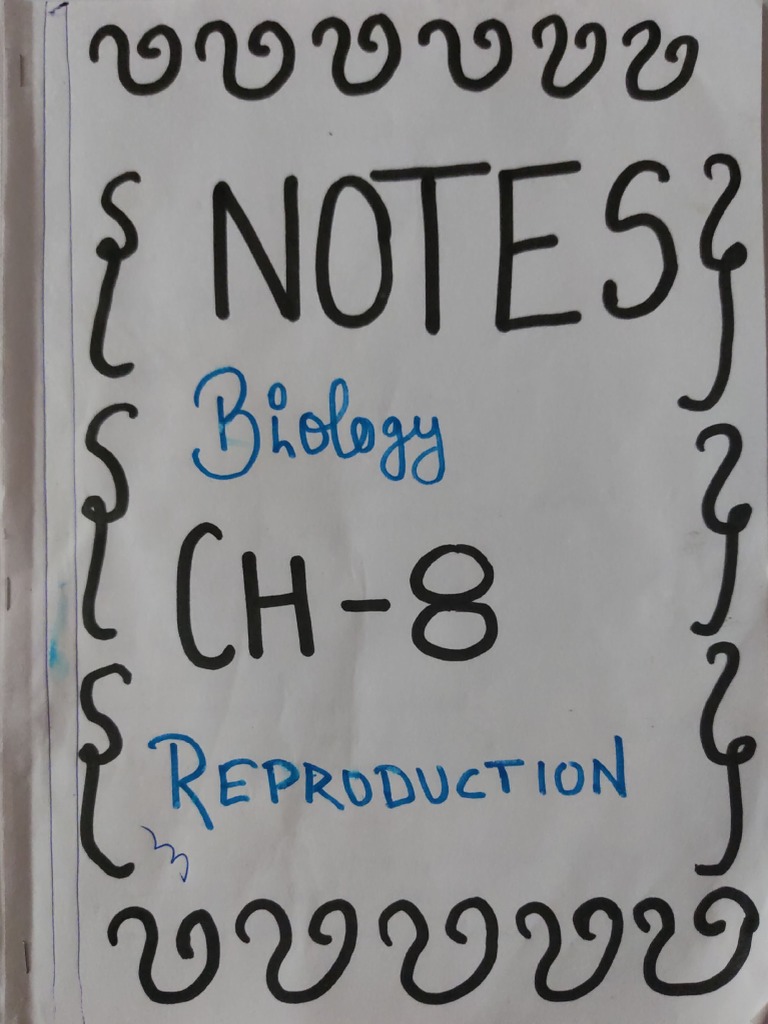 NOTES
Biology
CH-8
REPRODUCTION